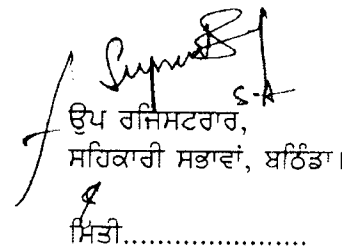 S-A
ਉਪ ਰਜਿਸਟਰਾਰ,
ਸਹਿਕਾਰੀ ਸਭਾਵਾਂ, ਬਠਿੰਡਾ।
ਮਿਤੀ......................